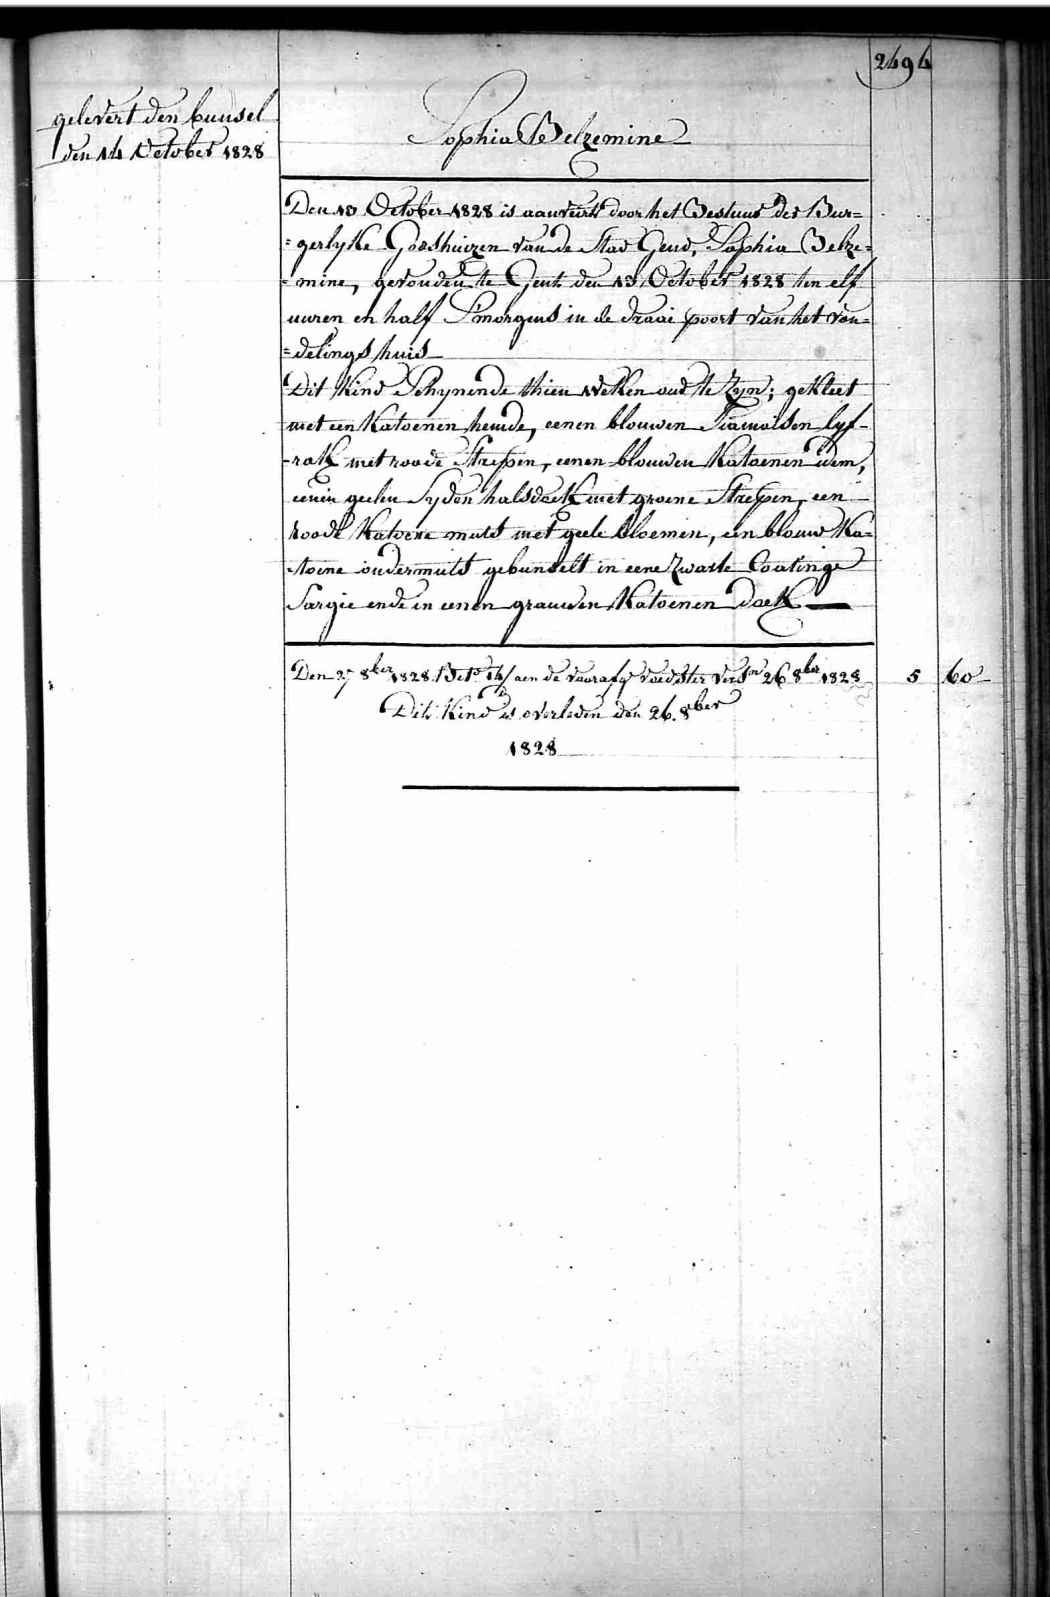 2494
gelevert den bunsel
den 14 October 1828
Sophia Belzemine
Den 13 October 1828 is aanveirt door het Bestuur der Bur=
=gerlyke Godshuizen van de Stad Gend, Sophia Belze=
=mine, gevonden te Gent den 13 October 1828 ten elf
uuren en half S'morgens in de draai poort van het von=
=delings huis
Dit Kind Schynende thien weken oud te Zyn; gekleet
met een Katoenen hemde, eenen blouwen Siamoisen lyf=
=rok met roode Strepen, eenen blouwen Katoenen idem,
eenen geelen Syden halsdoek met groene Strepen, een
roode Katoene muts met geele bloemen, een blouw Ka=
=toene ondermuts gebunselt in eene Zwarte Coatinge
Sargie ende in eenen grauwen Katoenen doek
Den 27 8ber 1828 Bet.o 14/ aen de voorafg voedster vers.n 26 8ber 1828 5 60
Dit Kind is overleden den 26. 8ber
1828